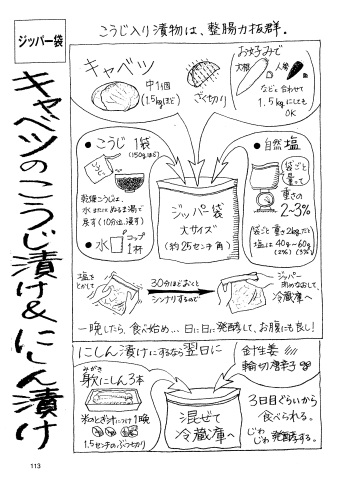 ジッパー袋
キャベツのこうじ漬け&にしん漬け
こうじ入り漬物は、整腸力抜群。
キャベツ
中1個
(1.5kgほど)
ざく切り
お好みで
大根
人参
などと合わせて
1.5kgにしても
OK
●こうじ 1袋
(150gほど)
乾燥こうじは、
水またはぬるま湯で
戻す(10分位、浸す)
●水 コップ
1杯
ジッパー袋
大サイズ
(約25センチ角)
●自然塩
袋ごと
量って
重さの
2~3%
袋ごと重さ2kgだと
塩は40g~60g
(2%) (3%)
塩を
とかして
30分ほどおくと
シンナリするので
ジッパー
閉めなおして、
冷蔵庫へ
一晩したら、食べ始め…日に日に発酵して、お腹にも良し!
にしん漬けにするなら翌日に
みがき
身欠にしん3本
米のとぎ汁につけ1晩
1.5センチのぶつ切り
針生姜
輪切唐辛子
混ぜて
冷蔵庫へ
3日目ぐらいから
食べられる。
じわ
じわ発酵する。
113